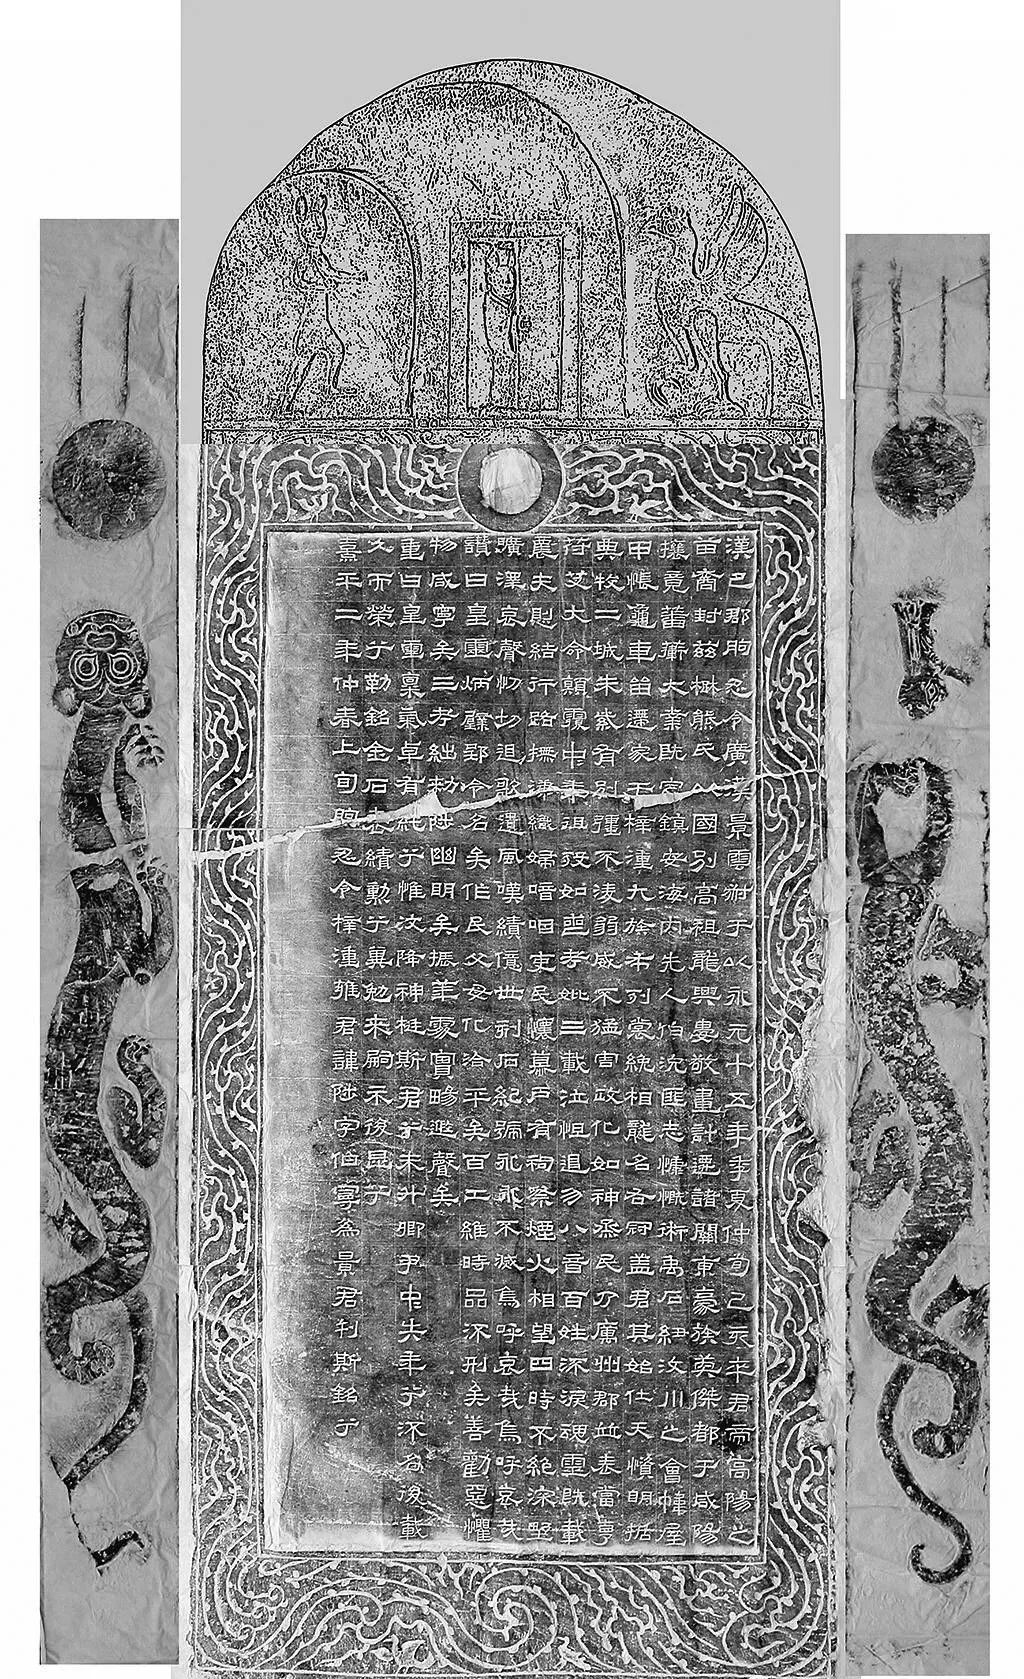 漢巴郡朐忍令廣漢景雲叔于以永元十五年季夏仲旬己亥卒君帝高陽之
苗裔封茲楚熊氏以國別高祖龍興婁敬畫計遷諸關東豪族英傑都于咸陽
攘竟蕃衛大業既定鎮安海內先人伯沇匪志慷慨術禹石紐汶川之會幃屋
甲帳龜車留遰家于梓潼九族布列裳絻相襲名右冠盖君其始仕天資明括
典牧二城朱紫有別彊不凌弱威不猛害政化如神烝民乃厲州郡並表當亨
苻艾大命顛覆中年徂歿如喪考妣三載泣怛遏勿八音百姓流淚魂靈既載
農夫惻結行路撫涕織婦喑咽吏民懷慕戶有祠祭煙火相望四時不絕深野
曠澤哀聲忉切追歌遺風嘆績億世刻石紀號永永不滅烏呼哀哉烏呼哀哉
讚曰皇靈炳璧郢令名矣作民父母化洽平矣百工維時品流刑矣善勸惡懼
物咸寧矣三考絀敕陟幽明矣振華處實暘遐聲矣
重曰皇靈稟氣卓有純兮惟汶降神梃斯君兮未升卿尹中失年兮流名後載
久而榮兮勒銘金石表績勳兮冀勉來嗣示後昆兮
熹平二年仲春上旬朐忍令梓潼雍君諱陟字伯寧為景君刊斯銘兮